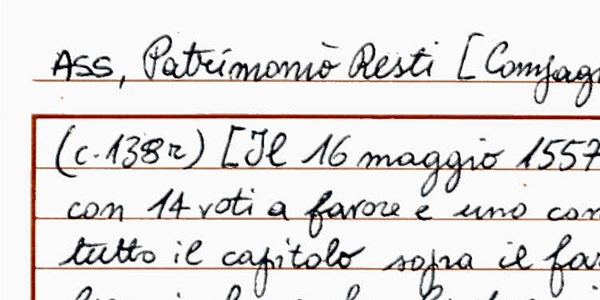 ASS, Patrimonio Resti [Compag
(c.138r) [Il 16 maggio 1557
con 14 voti a favore e uno con
tutto il capitolo sopra il fa